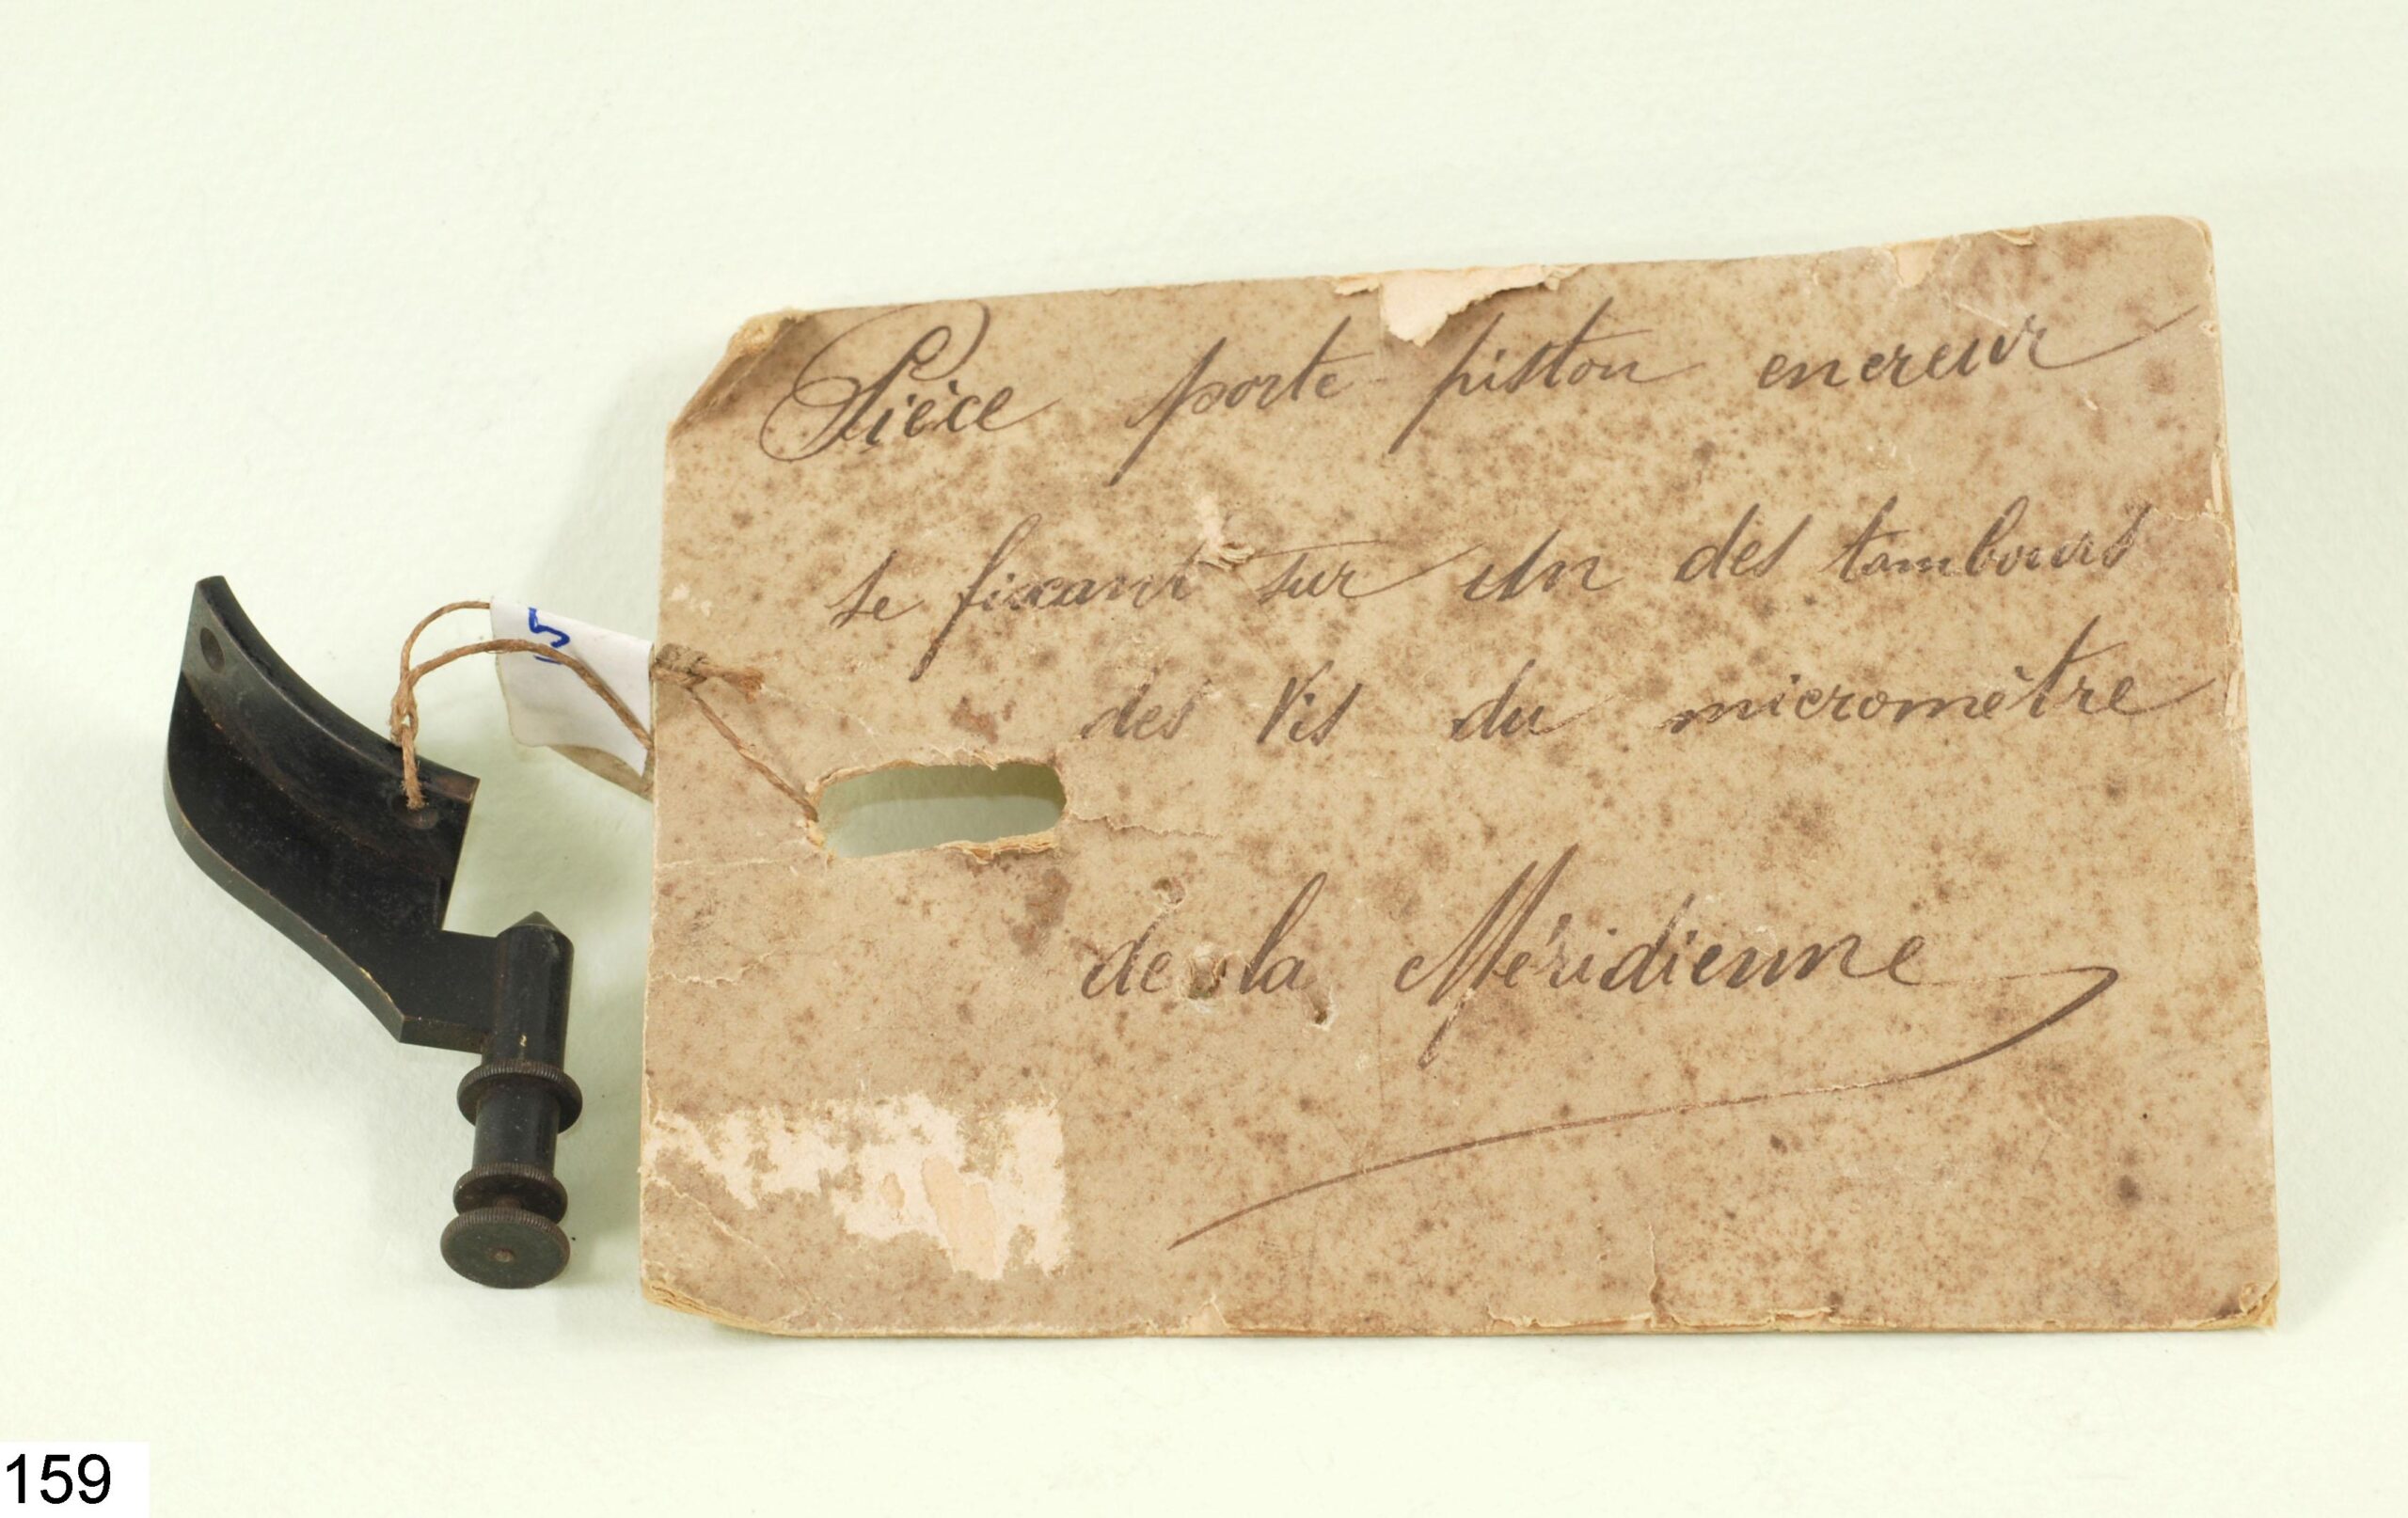 Pièce porte-piston encreur
se fixant sur un des tambours
des Vis du micromètre
de la Méridienne
159